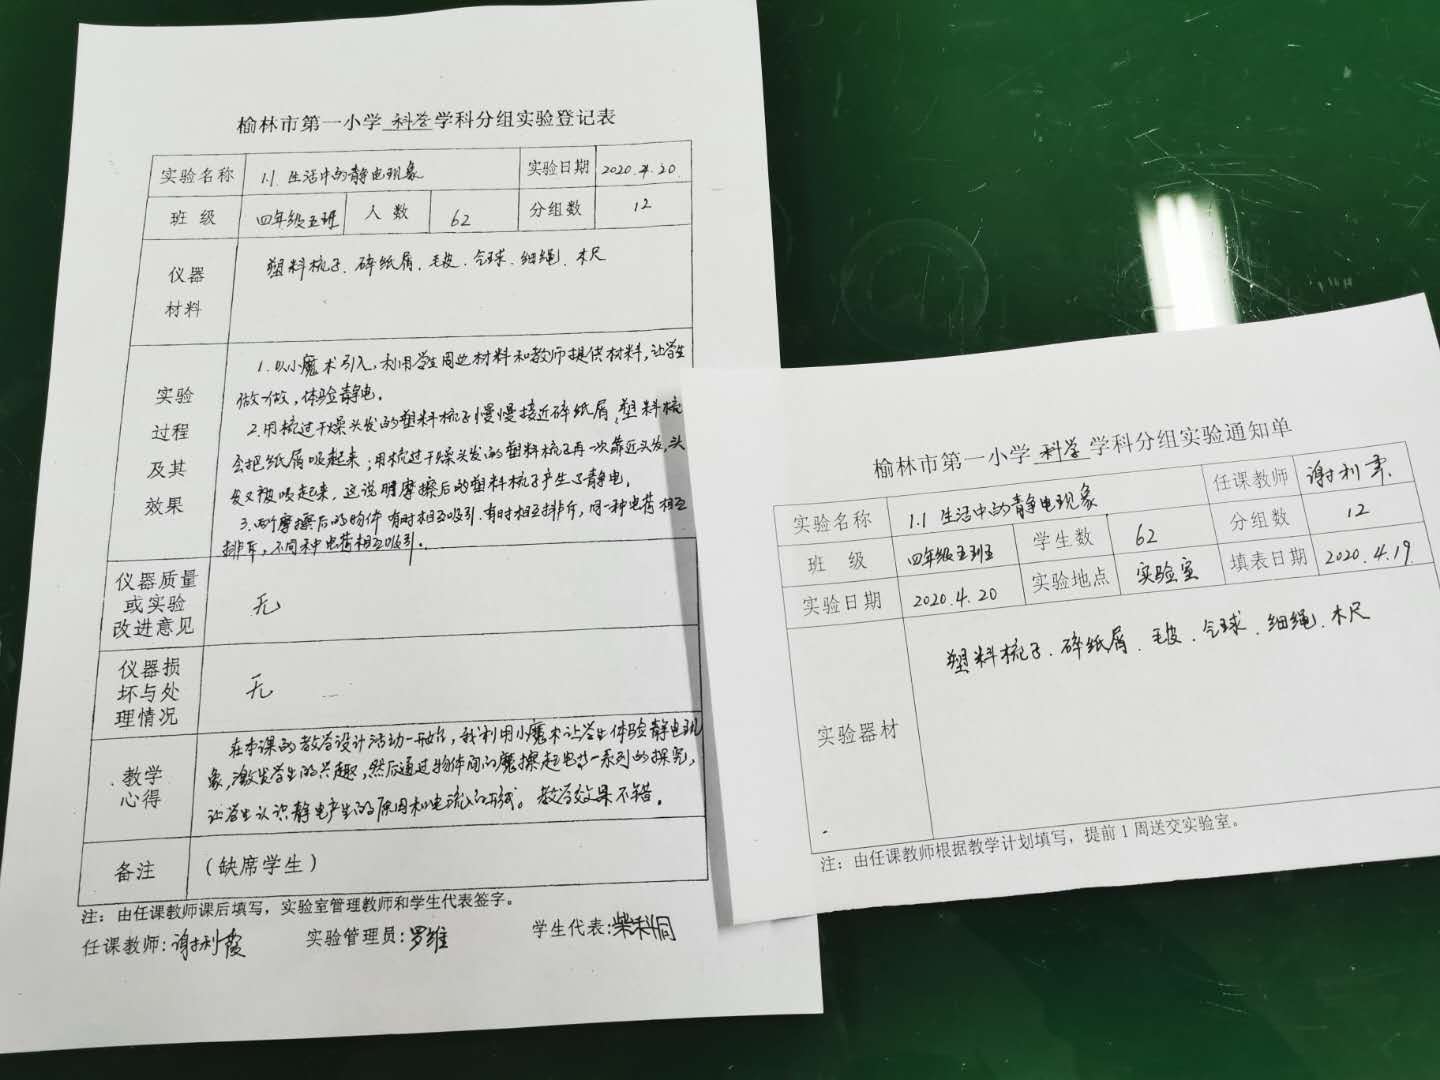 榆林市第一小学 科学 学科分组实验登记表
实验名称 1.1 生活中的静电现象 实验日期 2020.4.20.
班 级 四年级五班 人 数 62 分组数 12
仪器
材料
塑料梳子、碎纸屑、毛皮、气球、细绳、木尺
实验
过程
及其
效果
1.以小魔术引入,利用学生周边材料和教师提供材料,让学生
做一做,体验静电。
2.用梳过干燥头发的塑料梳子慢慢接近碎纸屑,塑料梳
会把纸屑吸起来;用梳过干燥头发的塑料梳子再一次靠近头发,头
发又被吸起来,这说明摩擦后的塑料梳子产生了静电。
3.两个摩擦后的物体有时相互吸引,有时相互排斥,同一种电荷相互
排斥,不同种电荷相互吸引。
仪器质量
或实验
改进意见
无
仪器损
坏与处
理情况
无
教学
心得
在本课的教学设计活动一开始,我利用小魔术让学生体验静电现
象,激发学生的兴趣,然后通过物体间的魔擦起电等一系列的探究,
让学生认识静电产生的原因和电流的形成。教学效果不错。
备注 (缺席学生)
注:由任课教师课后填写,实验室管理教师和学生代表签字。
任课教师:谢利霞 实验管理员:罗维 学生代表:柴科
榆林市第一小学 科学 学科分组实验通知单
实验名称 1.1 生活中的静电现象 任课教师 谢利
班 级 四年级五班 学生数 62 分组数 12
实验日期 2020.4.20 实验地点 实验室 填表日期 2020.4.19
实验器材
塑料梳子、碎纸屑、毛皮、气球、细绳、木尺
注:由任课教师根据教学计划填写,提前1周送交实验室。